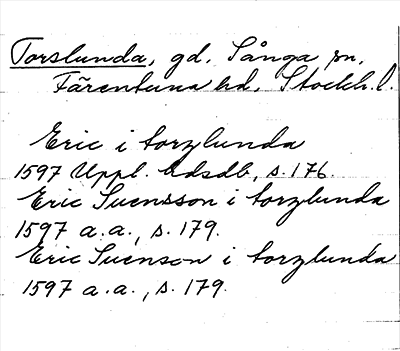 Torslunda, gd, Sånga sn,
Färentuna hd, Stockh. l.
Eric i torzlunda
1597 Uppl. hdsdb, s. 176.
Eric Suensson i torzlunda
1597 a.a., s. 179.
Eric Suenson i torzlunda
1597 a.a., s. 179.